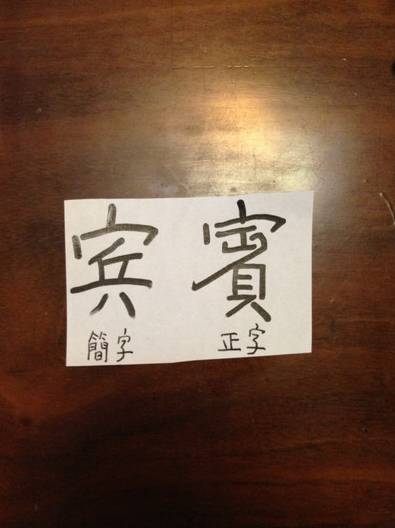 宾 賓
簡字 正字